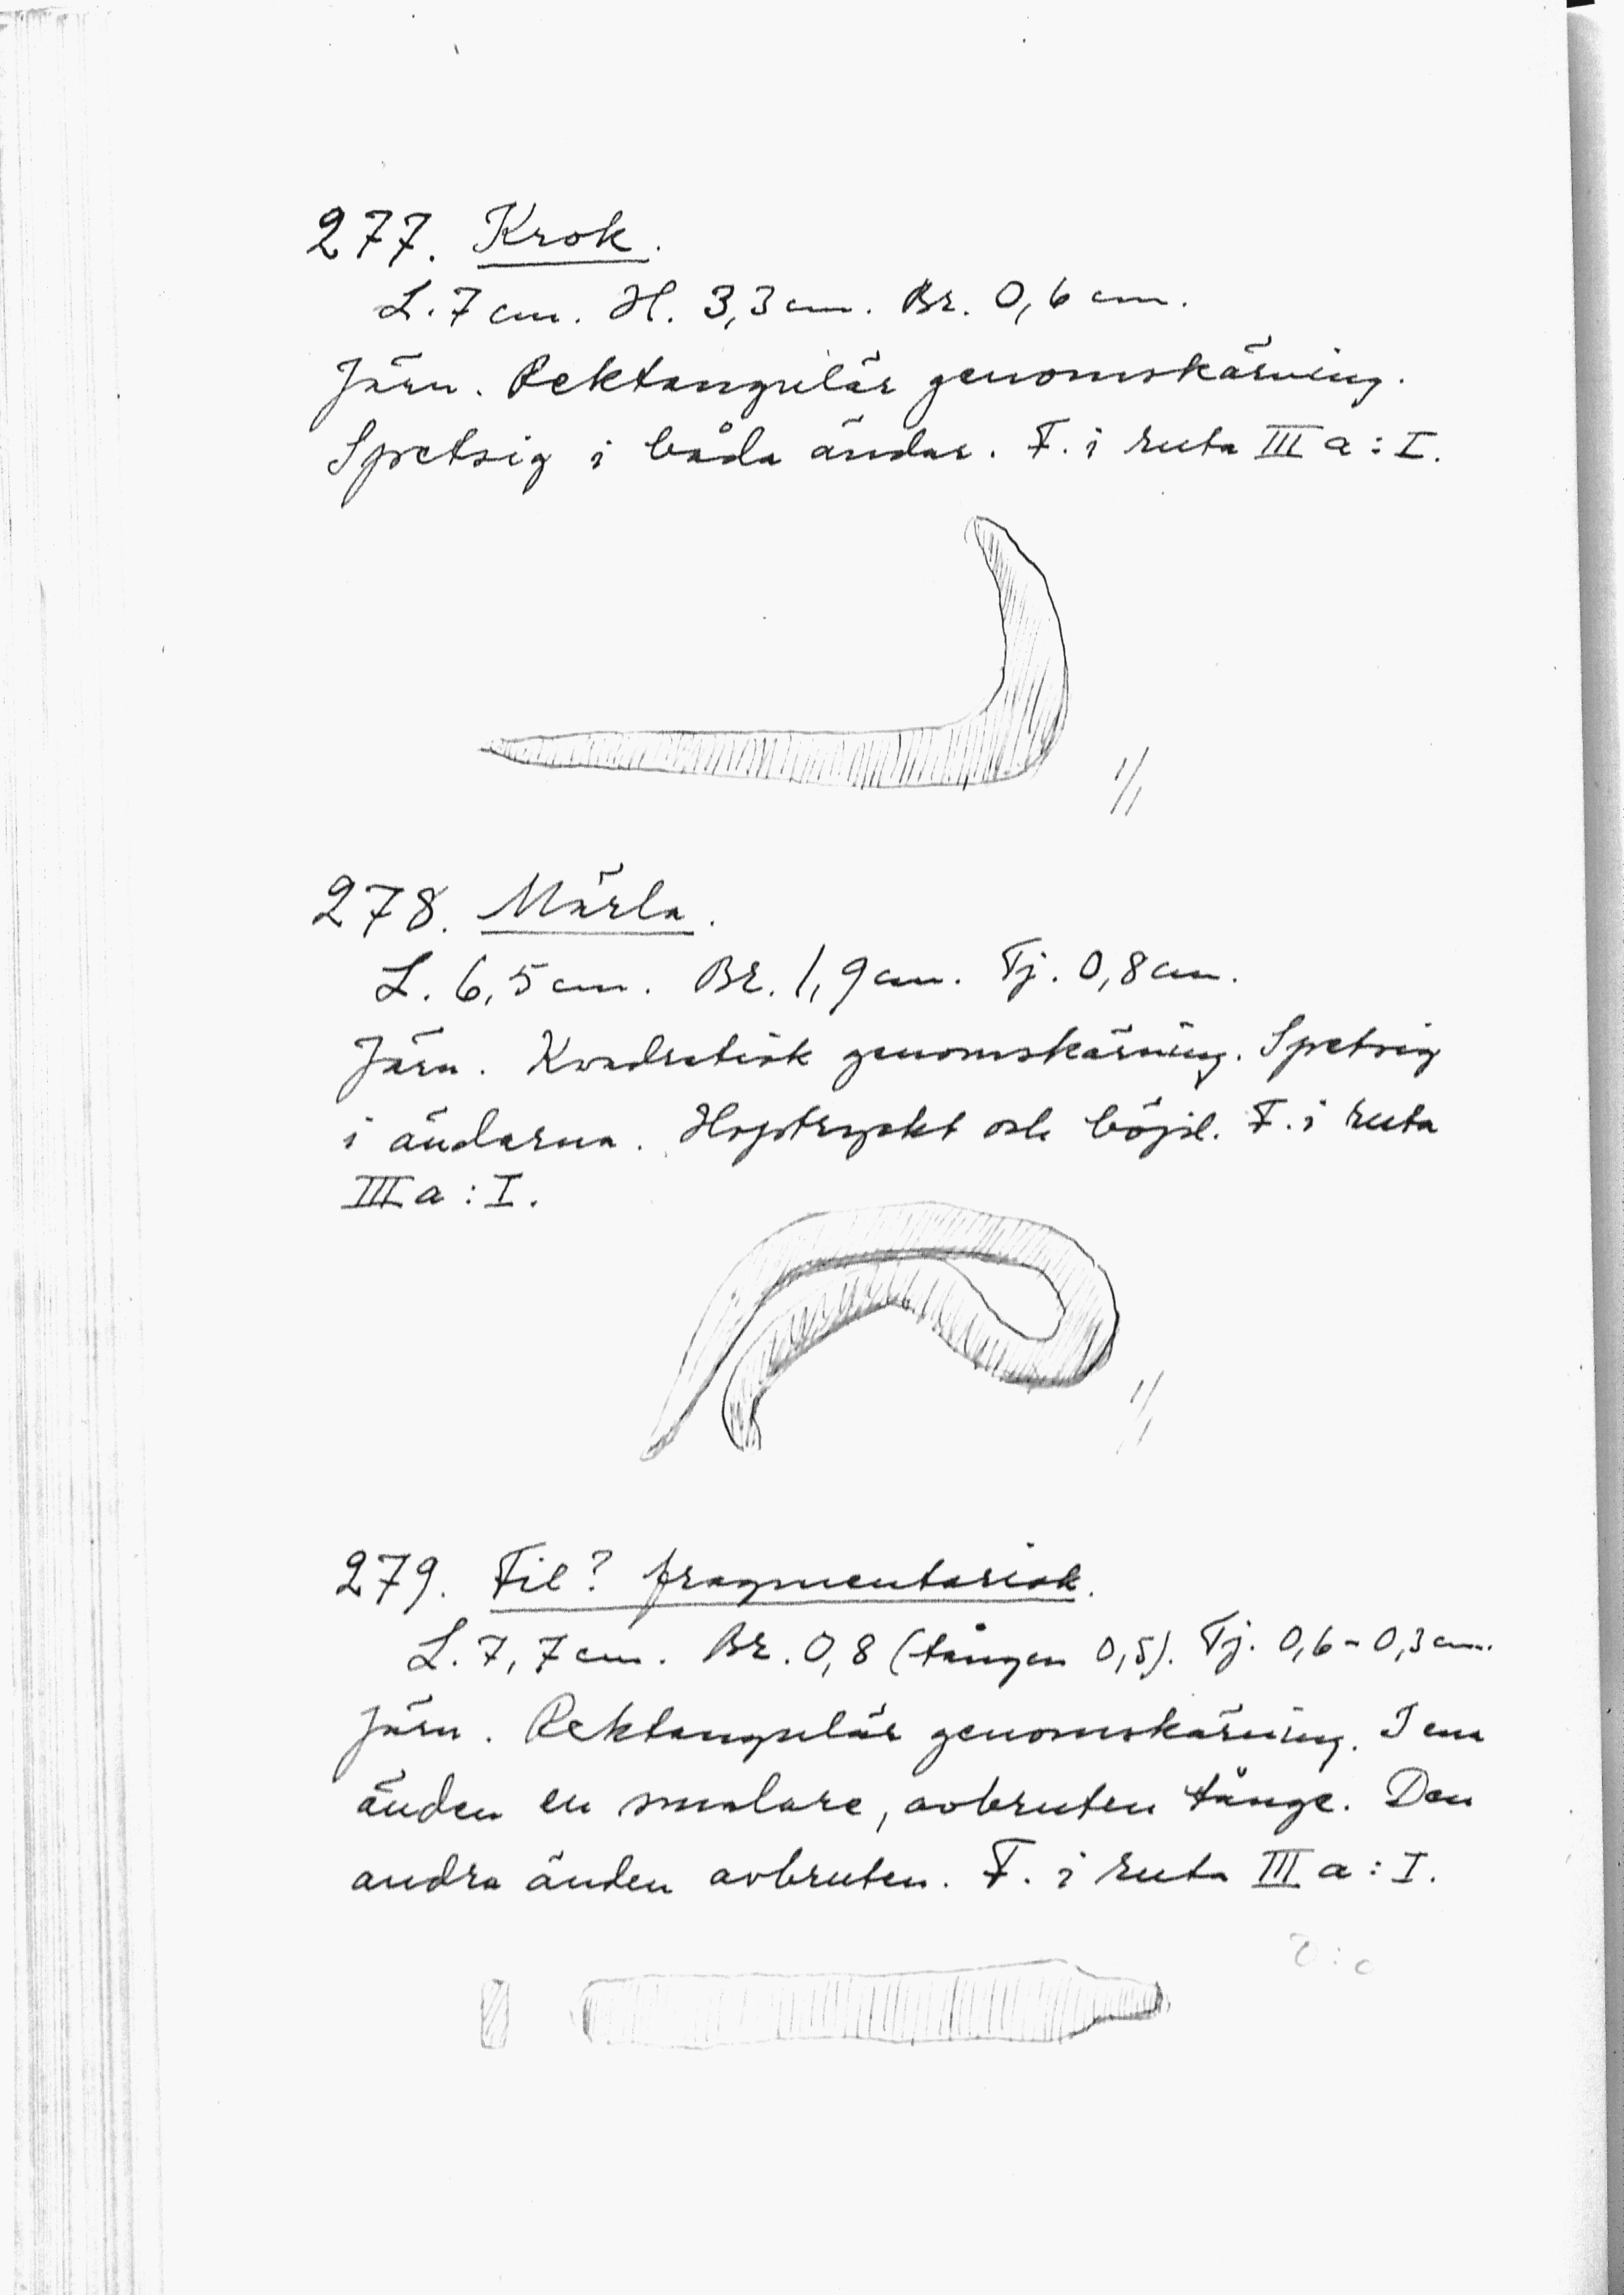 277. Krok.
L. 7 cm. H. 3,3 cm. Br. 0,6 cm.
Järn. Rektangulär genomskärning.
Spetsig i båda ändar. F. i ruta III a : I.
1/1
278. Märla.
L. 6,5 cm. Br. 1,9 cm. Tj. 0,8 cm.
Järn. Kvadratisk genomskärning. Spetsig
i ändarna. Hoptryckt och böjd. F. i ruta
III a : I.
1/1
279. Fil? fragmentarisk.
L. 7,7 cm. Br. 0,8 (tången 0,5). Tj. 0,6 - 0,3 cm.
Järn. Rektangulär genomskärning. I ena
änden en smalare, avbruten tånge. Den
andra änden avbruten. F. i ruta III a : I.